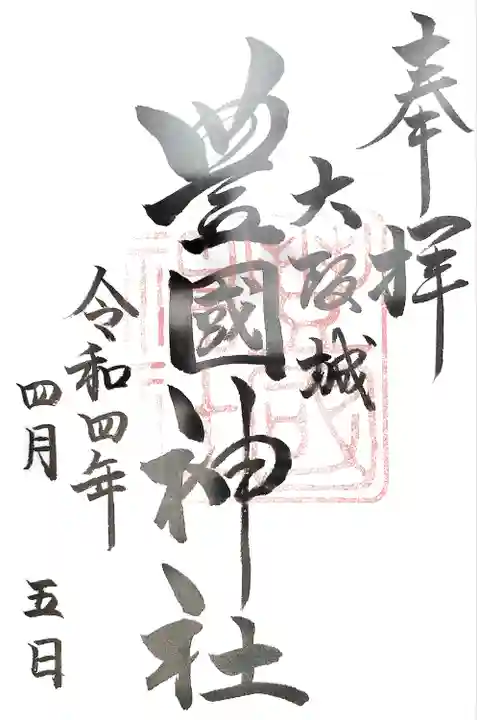 奉拝
大阪城
豊國神社
令和四年
四月 五日